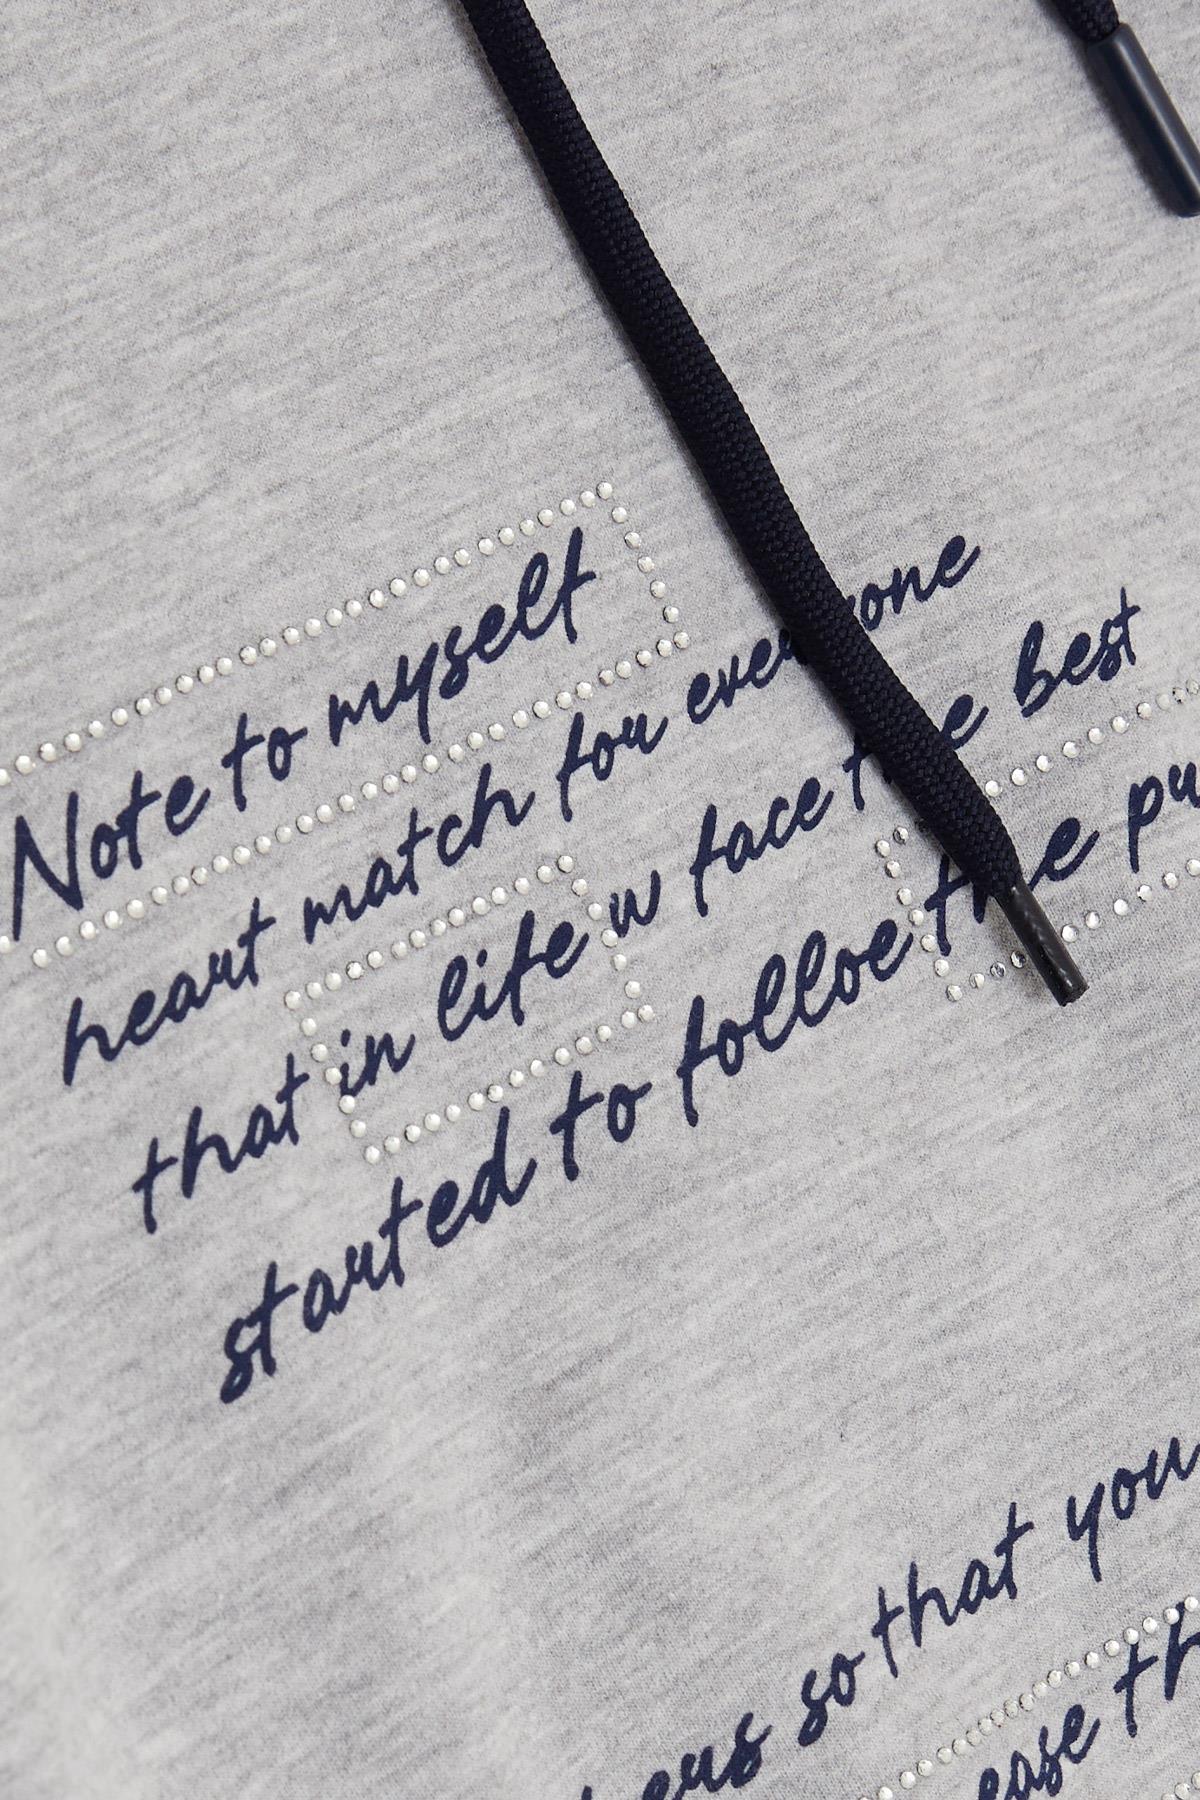 Note to myself
heart match for everyone
that in life w face the best
started to folloe the
so that you